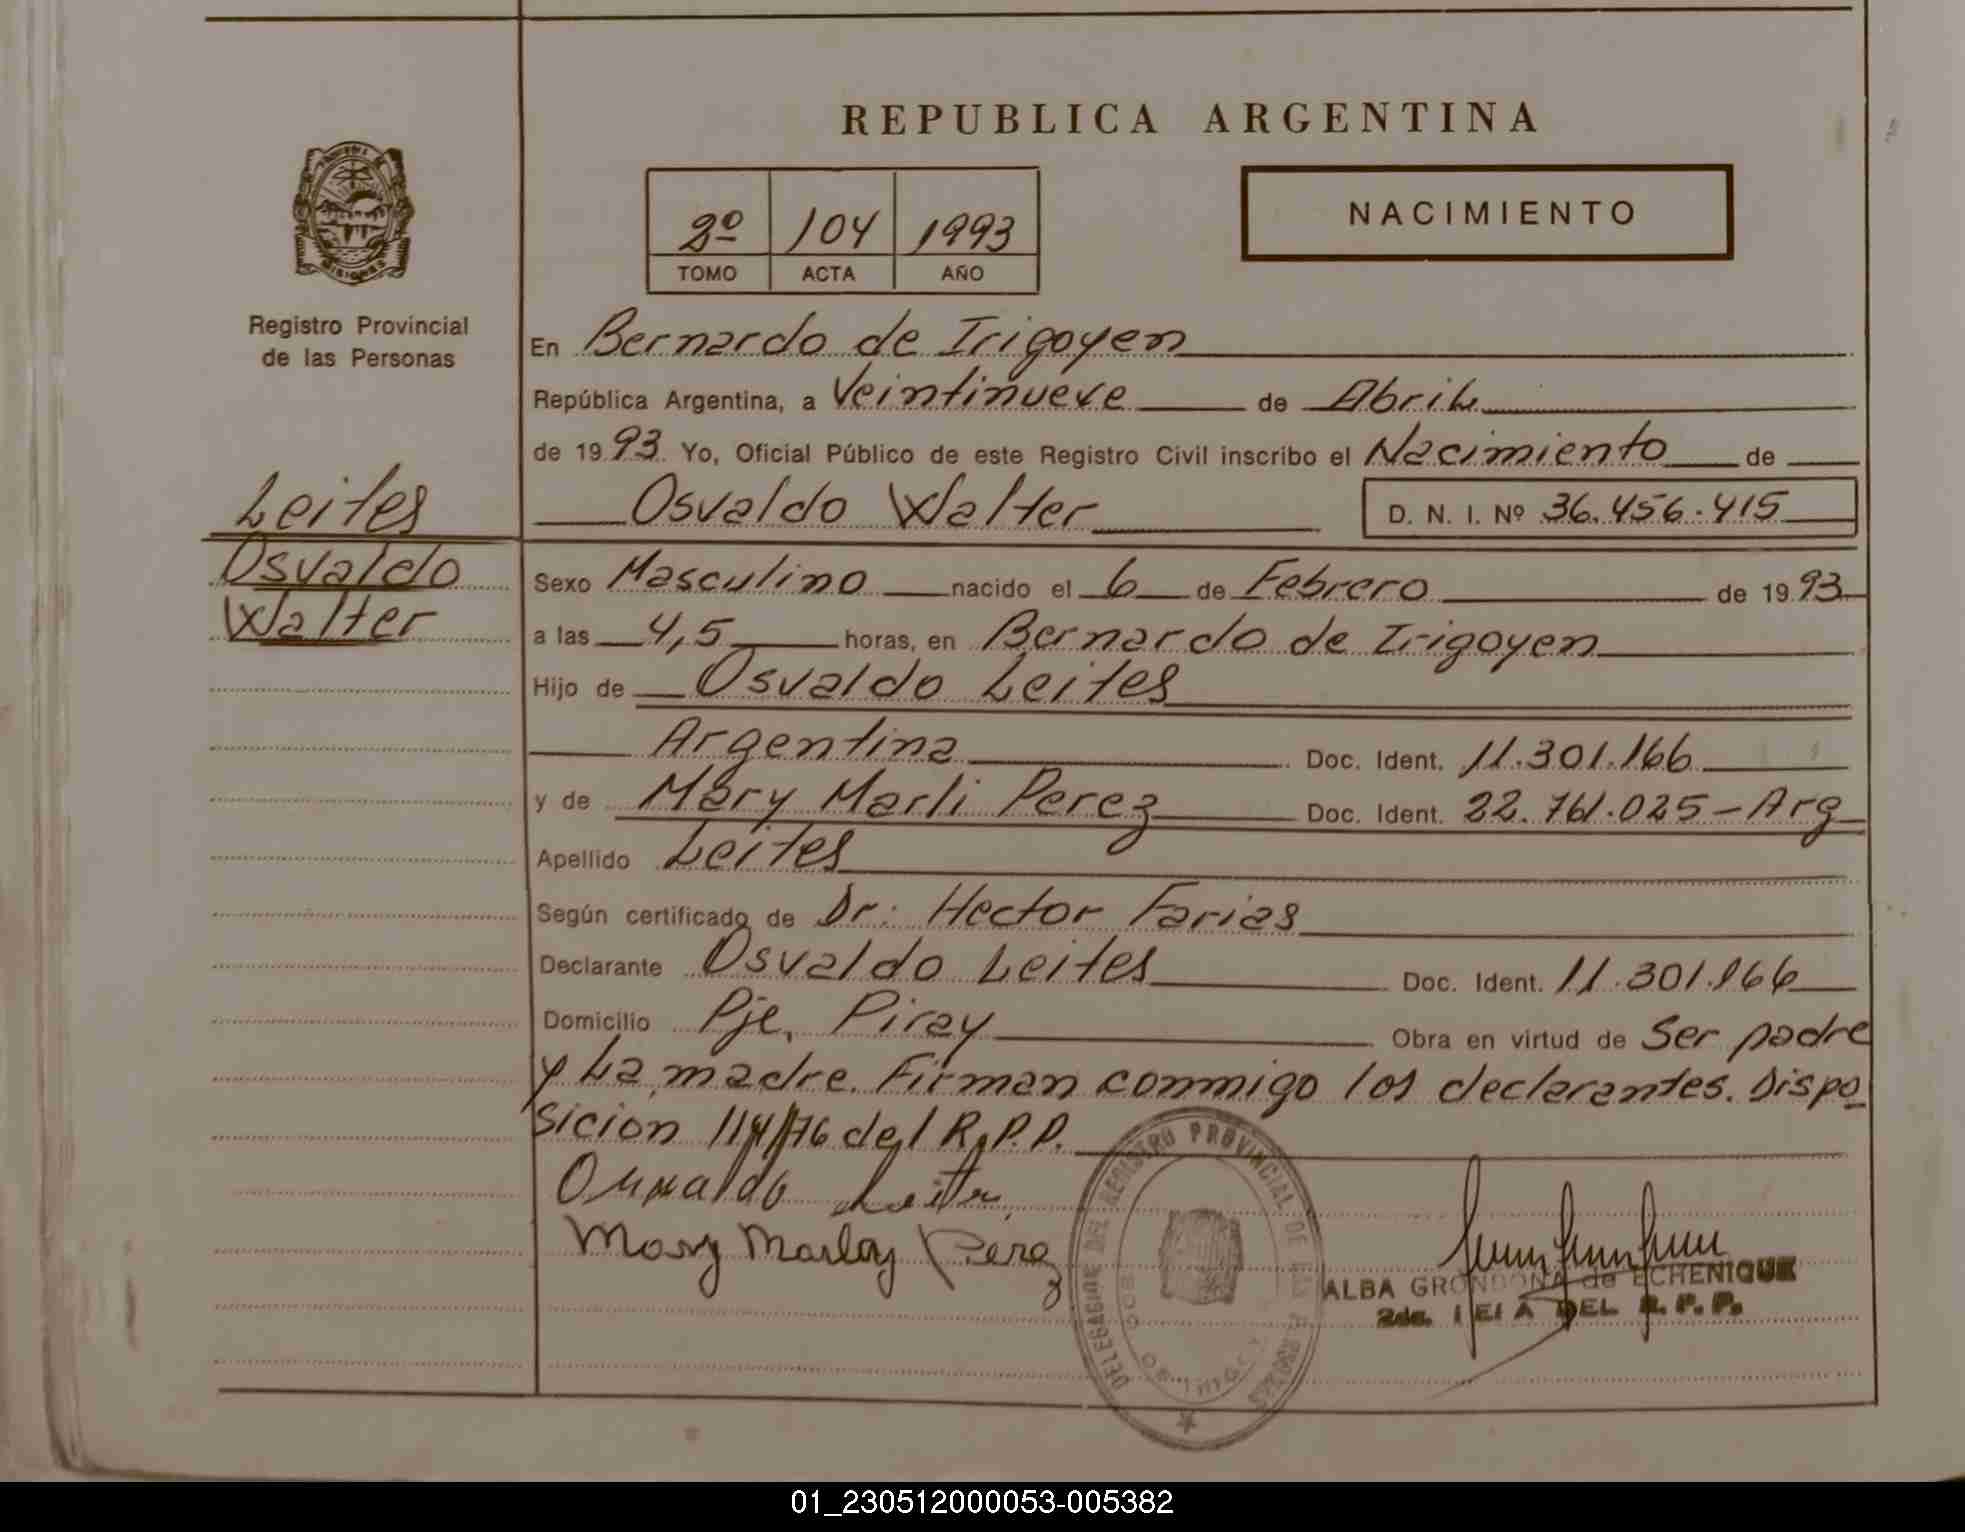 REPUBLICA ARGENTINA
2º 104 1993
TOMO ACTA AÑO
NACIMIENTO
MISIONES
Registro Provincial
de las Personas
Leites
Osvaldo
Walter
En Bernardo de Irigoyen
República Argentina, a Veintinueve de Abril
de 19 93 Yo, Oficial Público de este Registro Civil inscribo el Nacimiento de
Osvaldo Walter D. N. I. Nº 36.456.415
Sexo Masculino nacido el 6 de Febrero de 19 93
a las 4,5 horas, en Bernardo de Irigoyen
Hijo de Osvaldo Leites
Argentina Doc. Ident. 11.301.166
y de Mary Marli Perez Doc. Ident. 22.761.025 - Arg
Apellido Leites
Según certificado de Dr: Hector Farias
Declarante Osvaldo Leites Doc. Ident. 11.301.166
Domicilio Pje. Piray Obra en virtud de Ser padre
y La madre. Firman conmigo los declarantes. Dispo_
sicion 114/76 del R.P.P.
Osvaldo Leites
Mary Marley Perez
DELEGACION DEL REGISTRO PROVINCIAL DE LAS PERSONAS
ALBA GRONDONA de ECHENIQUE
DEL R. P. P.
01_230512000053-005382